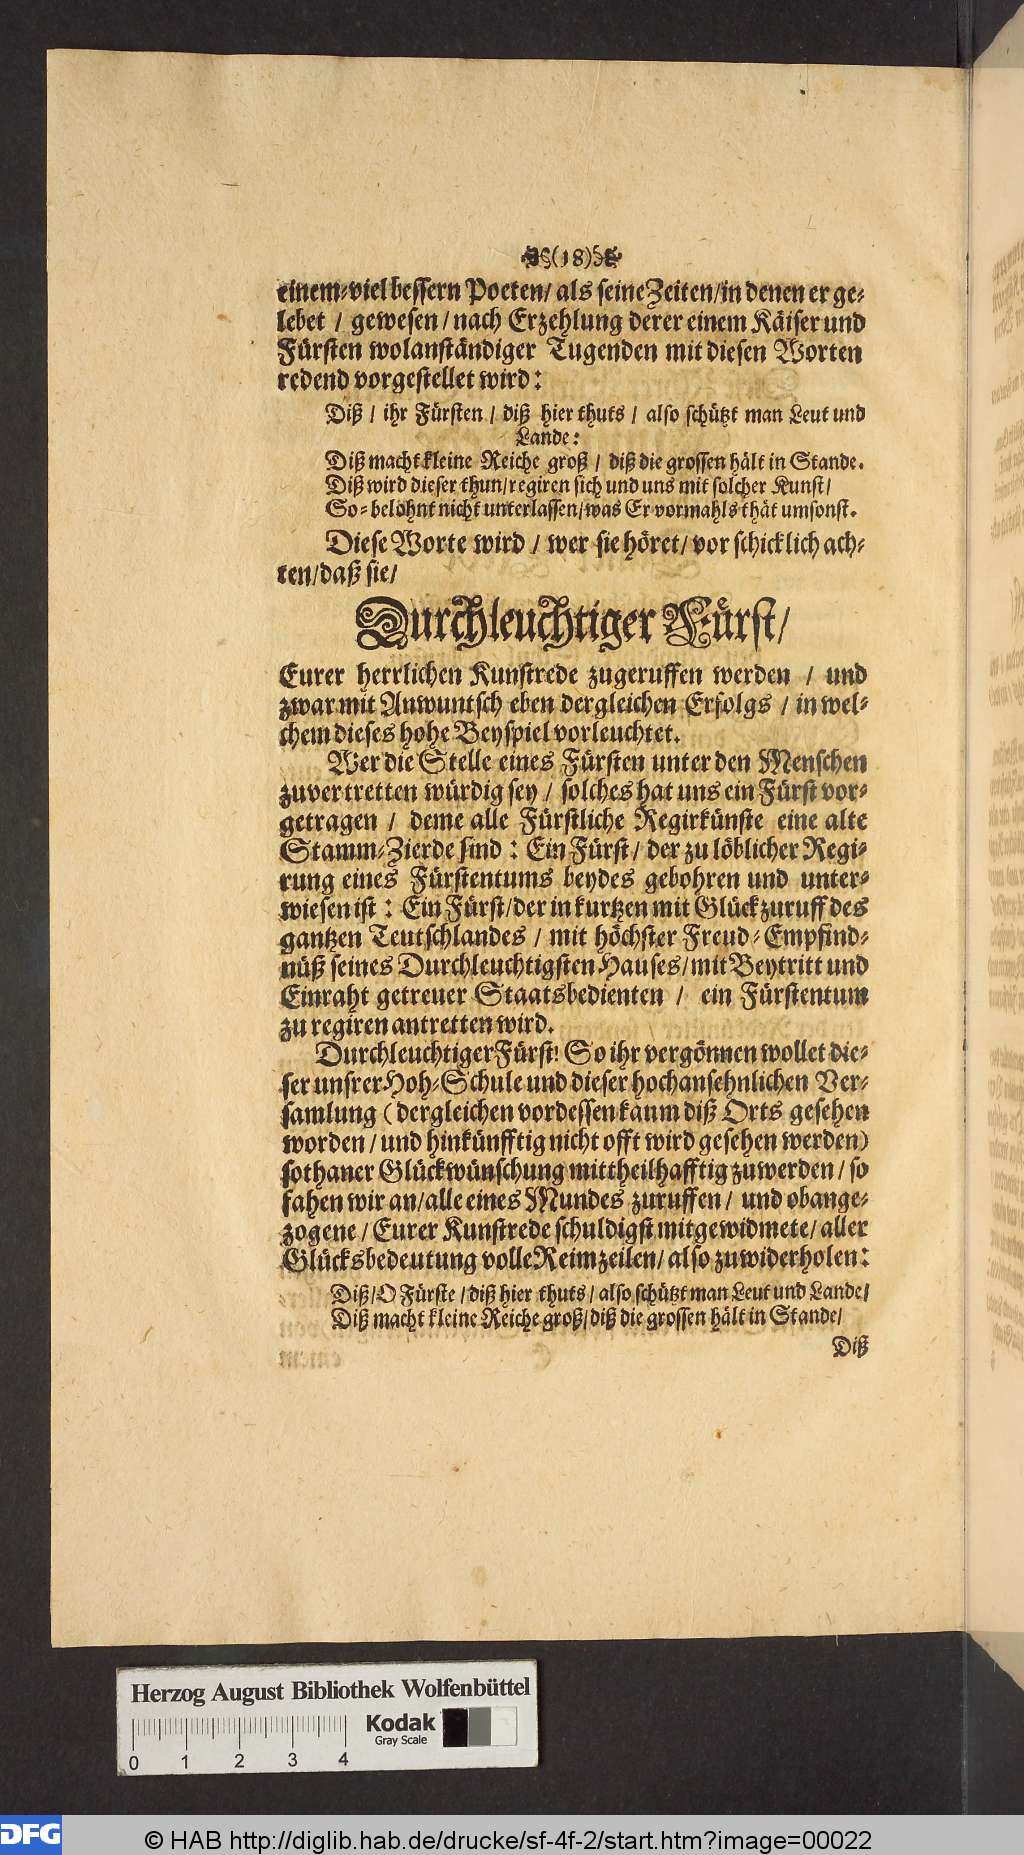 (18)
einem-viel bessern Poeten/ als seine Zeiten/in denen er ge-
lebet / gewesen / nach Erzehlung derer einem Käiser und
Fürsten wolanständiger Tugenden mit diesen Worten
redend vorgestellet wird:
Diß / ihr Fürsten / diß hier thuts / also schützt man Leut und
Lande:
Diß macht kleine Reiche groß / diß die grossen hält in Stande.
Diß wird dieser thun/regiren sich und uns mit solcher Kunst/
So-belohnt nicht unterlassen/was Er vormahls thät umsonst.
Diese Worte wird / wer sie höret/ vor schicklich ach-
ten/daß sie/
Durchleuchtiger Fürst/
Eurer herrlichen Kunstrede zugeruffen werden / und
zwar mit Anwuntsch eben dergleichen Erfolgs / in wel-
chem dieses hohe Beyspiel vorleuchtet.
Wer die Stelle eines Fürsten unter den Menschen
zuvertretten würdig sey / solches hat uns ein Fürst vor-
getragen / deme alle Fürstliche Regirkünste eine alte
Stamm-Zierde sind: Ein Fürst/ der zu löblicher Regi-
rung eines Fürstentums beydes gebohren und unter-
wiesen ist: Ein Fürst/der in kurtzen mit Glückzuruff des
gantzen Teutschlandes / mit höchster Freud-Empfind-
nüß seines Durchleuchtigsten Hauses/mit Beytritt und
Einraht getreuer Staatsbedienten / ein Fürstentum
zu regiren antretten wird.
Durchleuchtiger Fürst! So ihr vergönnen wollet die-
ser unsrer Hoh-Schule und dieser hochansehnlichen Ver-
samlung (dergleichen vordessen kaum diß Orts gesehen
worden/und hinkünfftig nicht offt wird gesehen werden)
sothaner Glückwünschung mittheilhafftig zuwerden/ so
fahen wir an/alle eines Mundes zuruffen/ und obange-
zogene/Eurer Kunstrede schuldigst mitgewidmete/ aller
Glücksbedeutung volle Reimzeilen/also zuwiderholen:
Diß/O Fürste /diß hier thuts/also schützt man Leut und Lande/
Diß macht kleine Reiche groß/diß die grossen hält in Stande/
Diß
Herzog August Bibliothek Wolfenbüttel
Kodak
Gray Scale
0 1 2 3 4
DFG © HAB http://diglib.hab.de/drucke/sf-4f-2/start.htm?image=00022